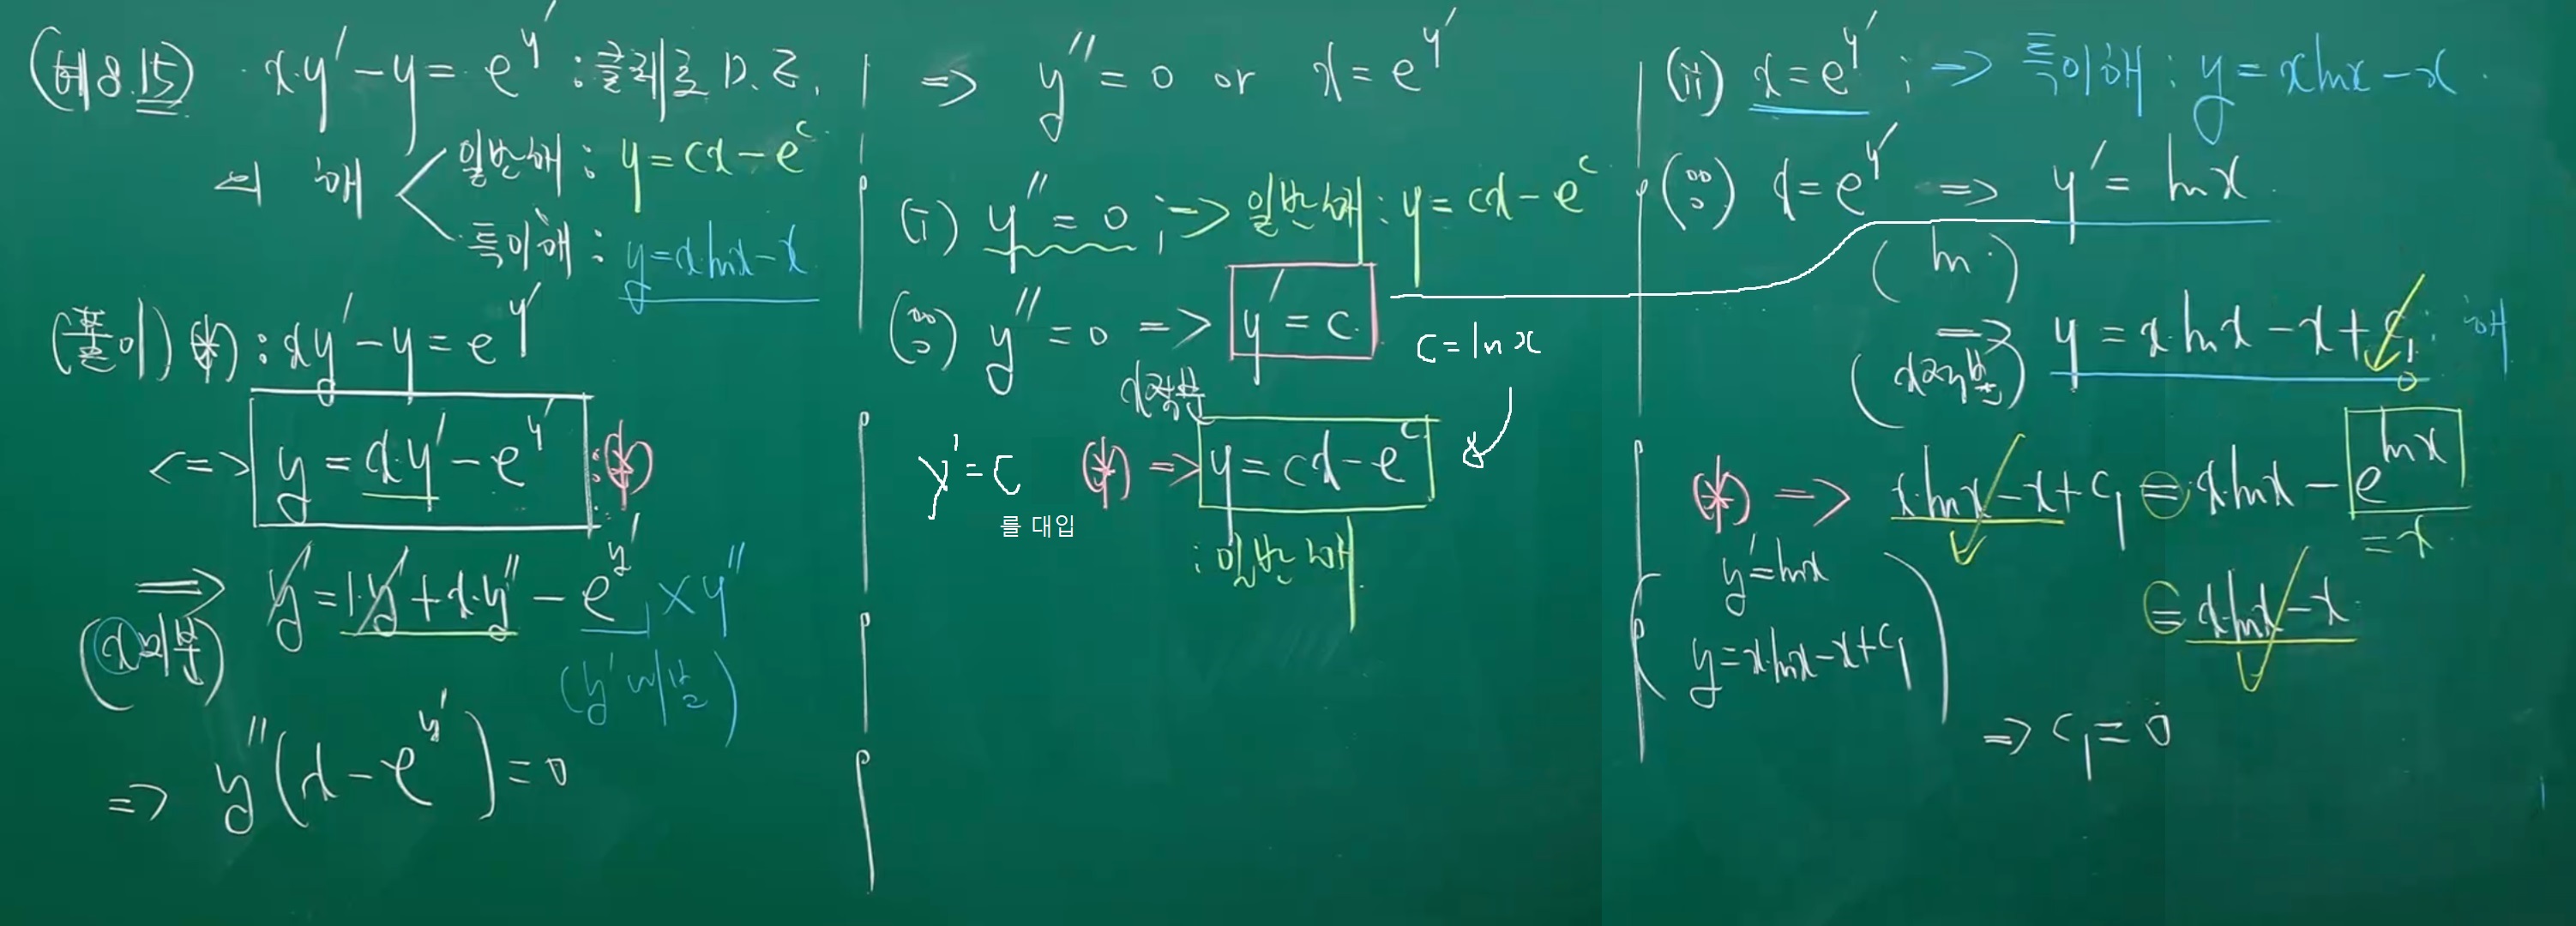 (예 8.15) x·y' - y = e^y' : 클레로 D.E.
의 해 < 일반해 : y = cx - e^c
특이해 : y = x·lnx - x
(풀이) (*) : xy' - y = e^y'
<=> y = x·y' - e^y' : (*)
=> y' = 1·y' + x·y'' - e^y' × y''
(x미분)
(y' 미분)
=> y''(x - e^y') = 0
=> y'' = 0 or x = e^y'
(i) y'' = 0 ; => 일반해 : y = cx - e^c
(∵) y'' = 0 => y' = c.
x적분
c = ln x
y' = c
를 대입
(*) => y = cx - e^c
: 일반해
(ii) x = e^y' ; => 특이해 : y = xlnx - x.
(∵) x = e^y' => y' = lnx.
(ln·)
=> y = x·lnx - x + c₁ : 해
0
(x적분)
(*) => x·lnx - x + c₁ = x·lnx - e^lnx
= x
y' = lnx
= x·lnx - x
y = x·lnx - x + c₁
=> c₁ = 0